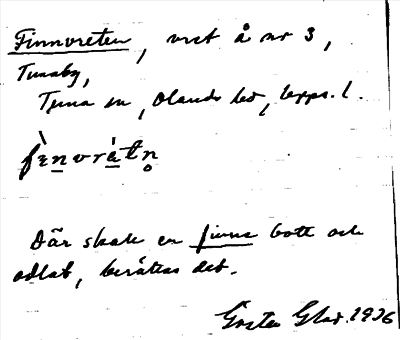 Finnvreten, vret å nr 3,
Tunaby,
Tuna sn, Olands hd, Uppl.
fὲnvrètn̥
Där skale en finne bott och
odlat, berättas det.
Gösta Glas. 1936